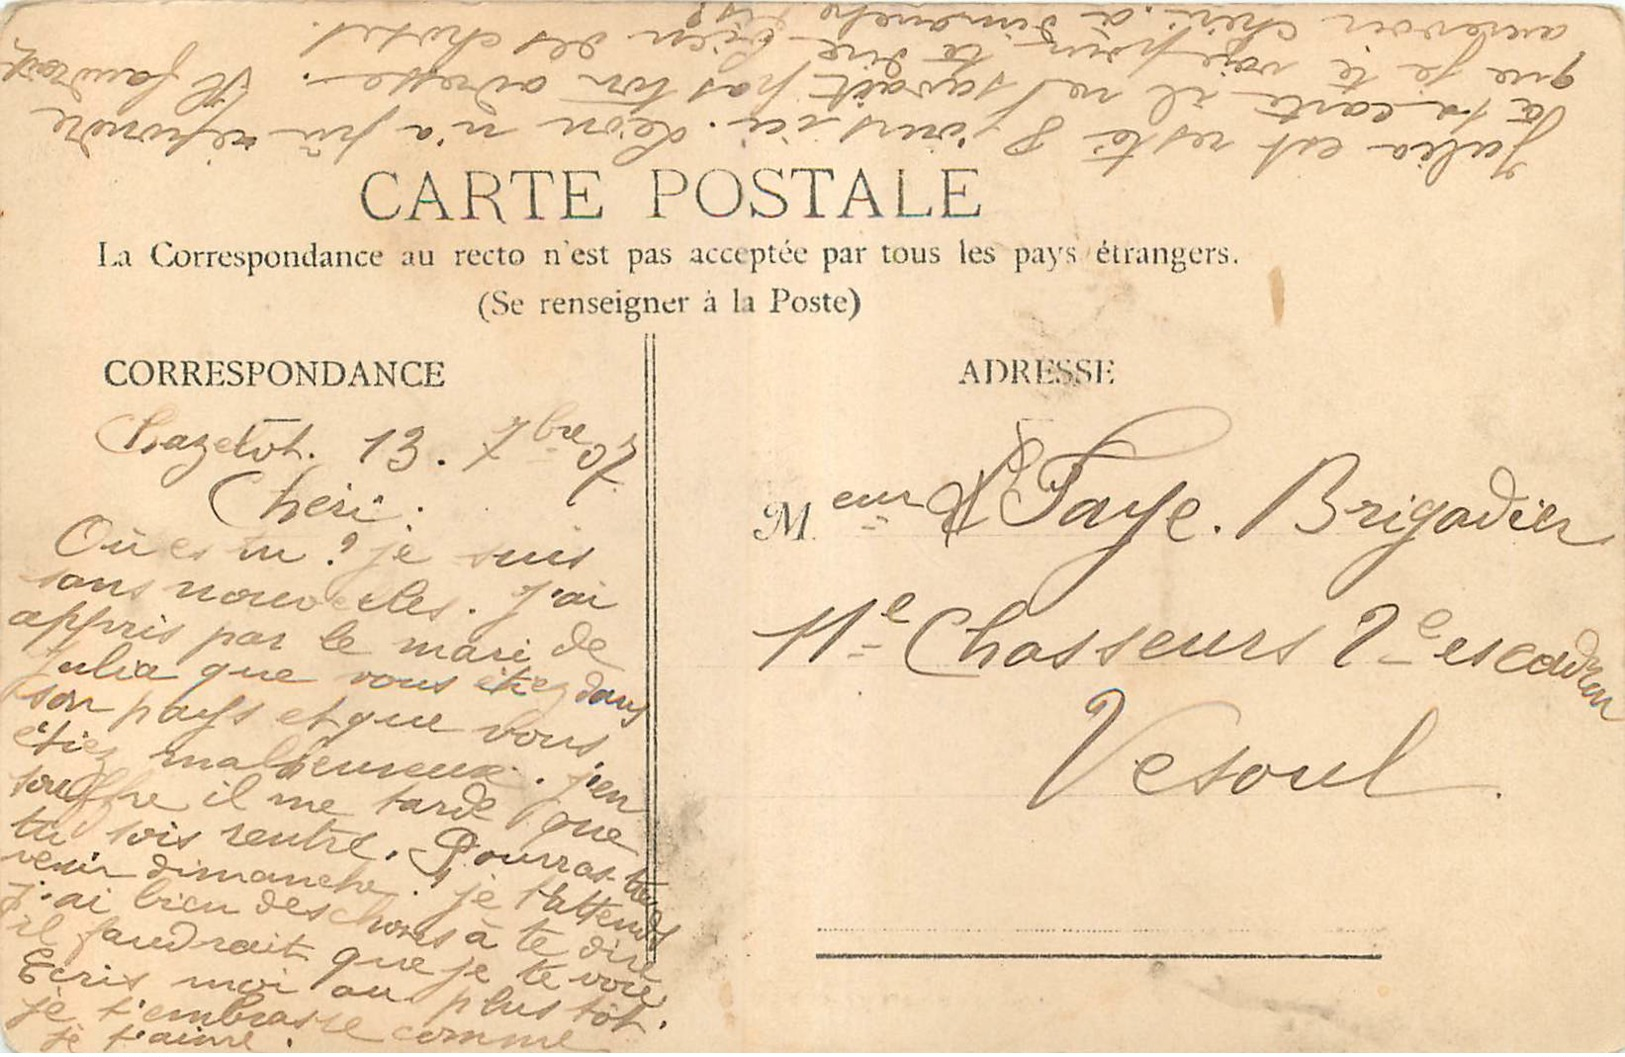 Julia est resté 8 jours ici. Léon n'a pu répondre
à ta carte il ne savait pas ton adresse. Il faudrait
que je te voie pour te dire bien des choses.
aurevoir cheri. à dimanche dis?
CARTE POSTALE
La Correspondance au recto n'est pas acceptée par tous les pays étrangers.
(Se renseigner à la Poste)
CORRESPONDANCE
Chazelot. 13. 7bre 07
Cheri.
Où es tu? je suis
sans nouvelles. J'ai
appris par le mari de
Julia que vous étiez dans
son pays et que vous
étiez malheureux. j'en
souffre il me tarde que
tu sois rentré. Pourras-tu
venir dimanche? je t'attends
j'ai bien des choses à te dire
il faudrait que je te voie.
Ecris moi au plus tôt.
je t'embrasse comme
je t'aime.
ADRESSE
Meur Faye. Brigadier
11e Chasseurs 2e escadron
Vesoul.